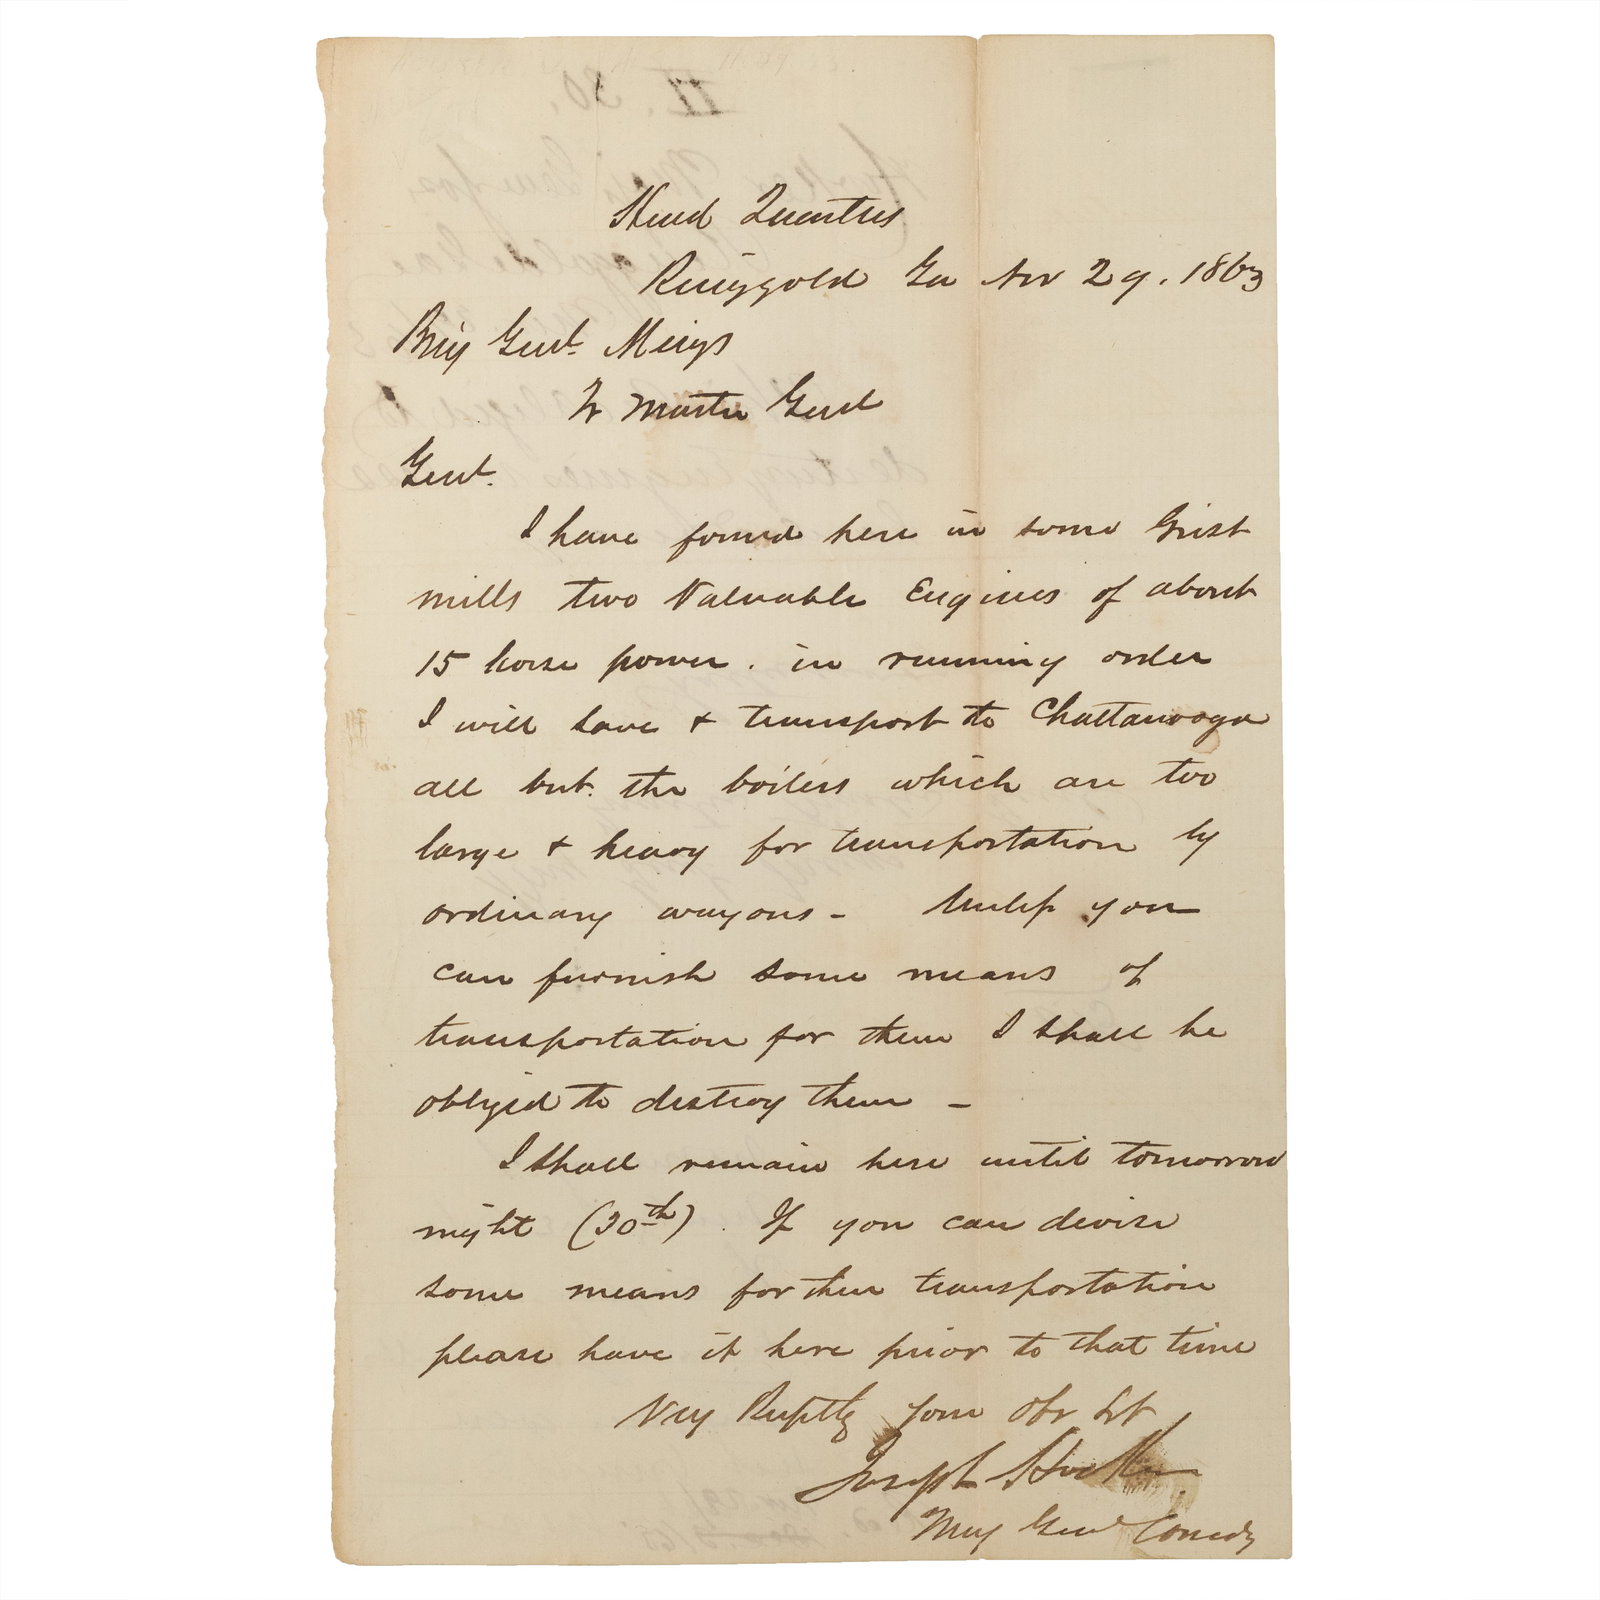 Head Quarters
Ringgold Ga Nov 29. 1863
Brig Genl. Meigs
Qr Master Genl
Genl.
I have found here in some Grist
mills two Valuable Engines of about
15 horse power. in running order
I will save & transport to Chattanooga
all but. the boilers which are too
large & heavy for transportation by
ordinary wagons - Unless you
can furnish some means of
transportation for them I shall be
obliged to destroy them -
I shall remain here until tomorrow
night (30th). If you can devise
some means for their transportation
please have it here prior to that time
Very Resptly your Obt Svt
Joseph Hooker
Maj Genl Comdg
II. 30.